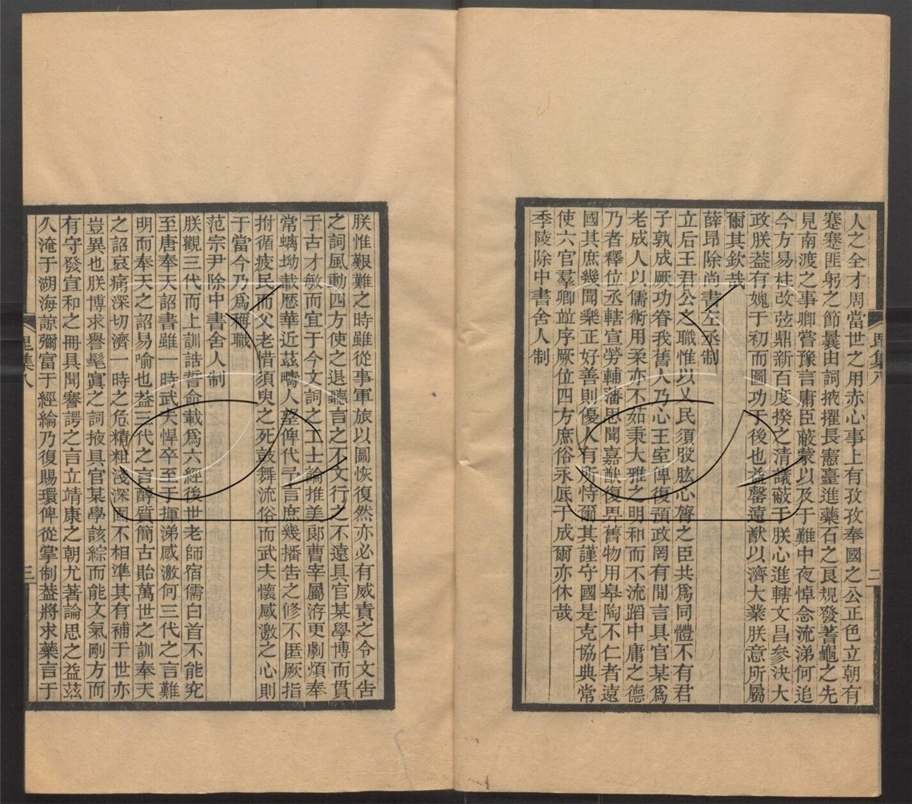 人之全才周當世之用赤心事上有孜孜奉國之公正色立朝有
蹇蹇匪躬之節曩由詞掖擢長憲臺進藥石之良規發蓍龜之先
見南渡之事卿嘗豫言庸臣蔽蒙以及于難中夜悼念流涕何追
今方易柱改弦鼎新百度揆之清議蔽于朕心進轄文昌參決大
政朕葢有媿于初而圖功于後也益罄遠猷以濟大業朕意所屬
爾其欽哉
薛昂除尚書左丞制
立后王君公之職惟以乂民須股肱心膂之臣共爲同體不有君
子孰成厥功眷我舊人乃心王室俾復預政罔有閒言具官某爲
老成人以儒術用柔亦不茹秉大雅之明和而不流蹈中庸之德
乃者釋位丞轄宣勞輔藩思聞嘉猷復畀舊物用皋陶不仁者遠
國其庶幾聞樂正好善則優人有所恃爾其謹守國是克協典常
使六官羣卿竝序厥位四方庶俗永厎于成爾亦休哉
季陵除中書舍人制
毘集八
二
朕惟艱難之時雖從事軍旅以圖恢復然亦必有威責之令文告
之詞風動四方使之退聽言之不文行之不遠具官某學博而貫
于古才敏而宜于今文詞之工士論推美郞曹宰屬洊更劇煩奉
常螭坳載歷華近茲疇人望俾代予言庶幾播告之修不匿厥指
拊循疲民而父老惜須臾之死鼓舞流俗而武夫懷感激之心則
于當今乃爲稱職
范宗尹除中書舍人制
朕觀三代而上訓誥誓命載爲六經後世老師宿儒白首不能究
至唐奉天詔書雖一時武夫悍卒至于揮涕感激何三代之言難
明而奉天之詔易喻也葢三代之言醇質簡古貽萬世之訓奉天
之詔哀痛深切濟一時之危精粗淺深固不相準其有補于世亦
豈異也朕博求譽髦寘之詞掖具官某學該綜而能文氣剛方而
有守發宣和之冊具聞謇諤之言立靖康之朝尤著論思之益茲
久淹于湖海諒彌富于經綸乃復賜環俾從掌制葢將求藥言于
毘集八
三